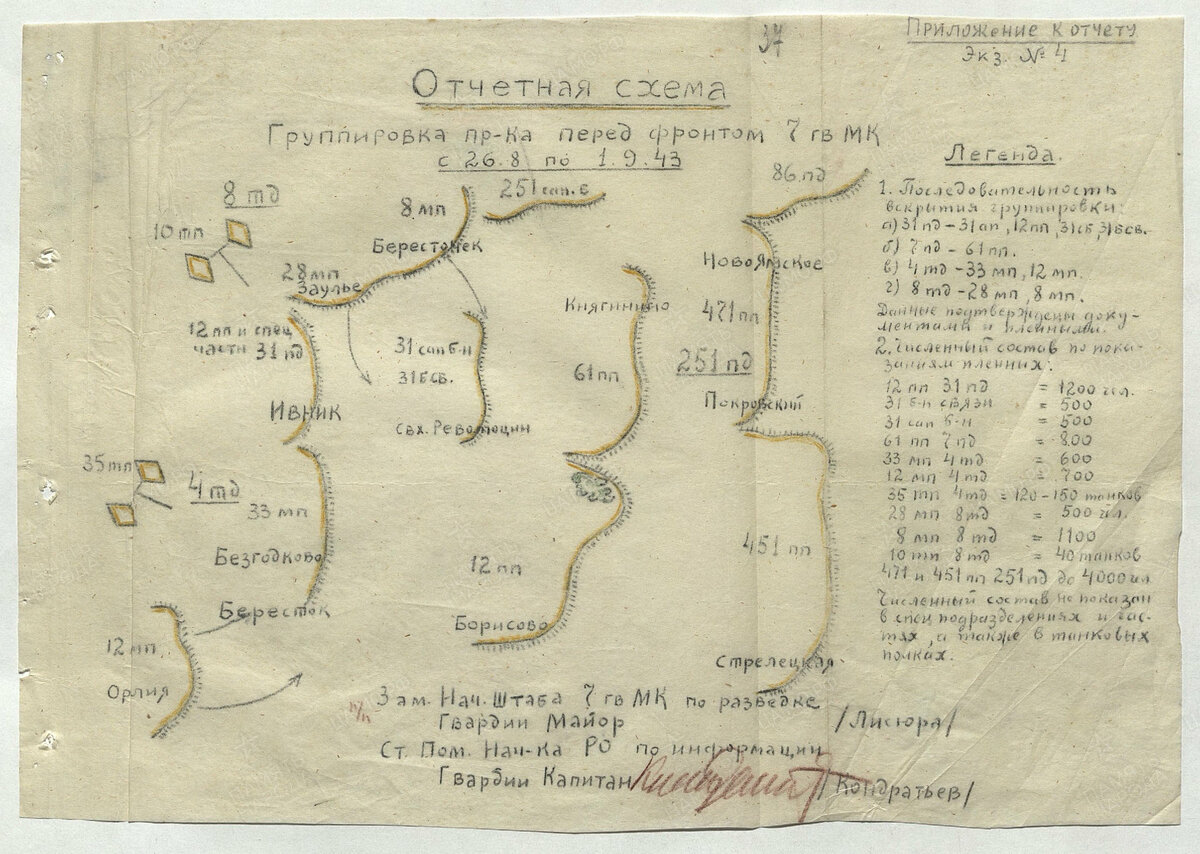 Приложение к отчету
Экз. № 4
37
Отчетная схема
Группировка пр-ка перед фронтом 7 гв МК
с 26.8 по 1.9.43
8 тд
10 тп
8 мп
251 сап. б
86 пд
Берестонек
28 мп
Заулье
12 пп и спец
части 31 пд
Ивник
31 сап б-н
31 б св.
Свх. Революции
Княгинино
61 пп
Новоямское
471 пп
251 пд
Покровский
35 тп
4 тд
33 мп
Безгодково
Бересток
12 мп
Орлия
12 пп
Борисово
451 пп
Стрелецкая
Легенда.
1. Последовательность
вскрытия группировки:
а) 31 пд – 31 ап, 12 пп, 31 сб, 31 бсв.
б) 7 пд – 61 пп.
в) 4 тд – 33 мп, 12 мп.
г) 8 тд – 28 мп, 8 мп.
Данные подтверждены доку-
ментами и пленными.
2. Численный состав по пока-
заниям пленных:
12 пп 31 пд = 1200 чел.
31 б-н связи = 500
31 сап б-н = 500
61 пп 7 пд = 800
33 мп 4 тд = 600
12 мп 4 тд = 700
35 тп 4 тд = 120 – 150 танков
28 мп 8 тд = 500 чл.
8 мп 8 тд = 1100
10 тп 8 тд = 40 танков
471 и 451 пп 251 пд до 4000 чл
Численный состав не показан
в спец подразделениях и час-
тях, а также в танковых
полках.
Зам. Нач. Штаба 7 гв МК по разведке
п/п
Гвардии Майор /Лисюра/
Ст. Пом. Нач-ка РО по информации
Гвардии Капитан /Кондратьев/